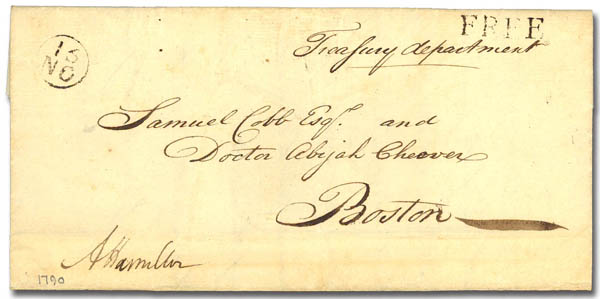 FREE
Treasury department
13
NO
Samuel Cobb Esqr. and
Doctor Abijah Cheever
Boston
A Hamilton
1790